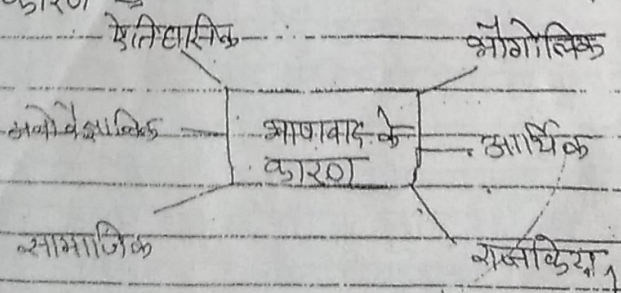 कारण →
ऐतिहासिक
भौगोलिक
मनोवैज्ञानिक
भाषावाद के
कारण
आर्थिक
सामाजिक